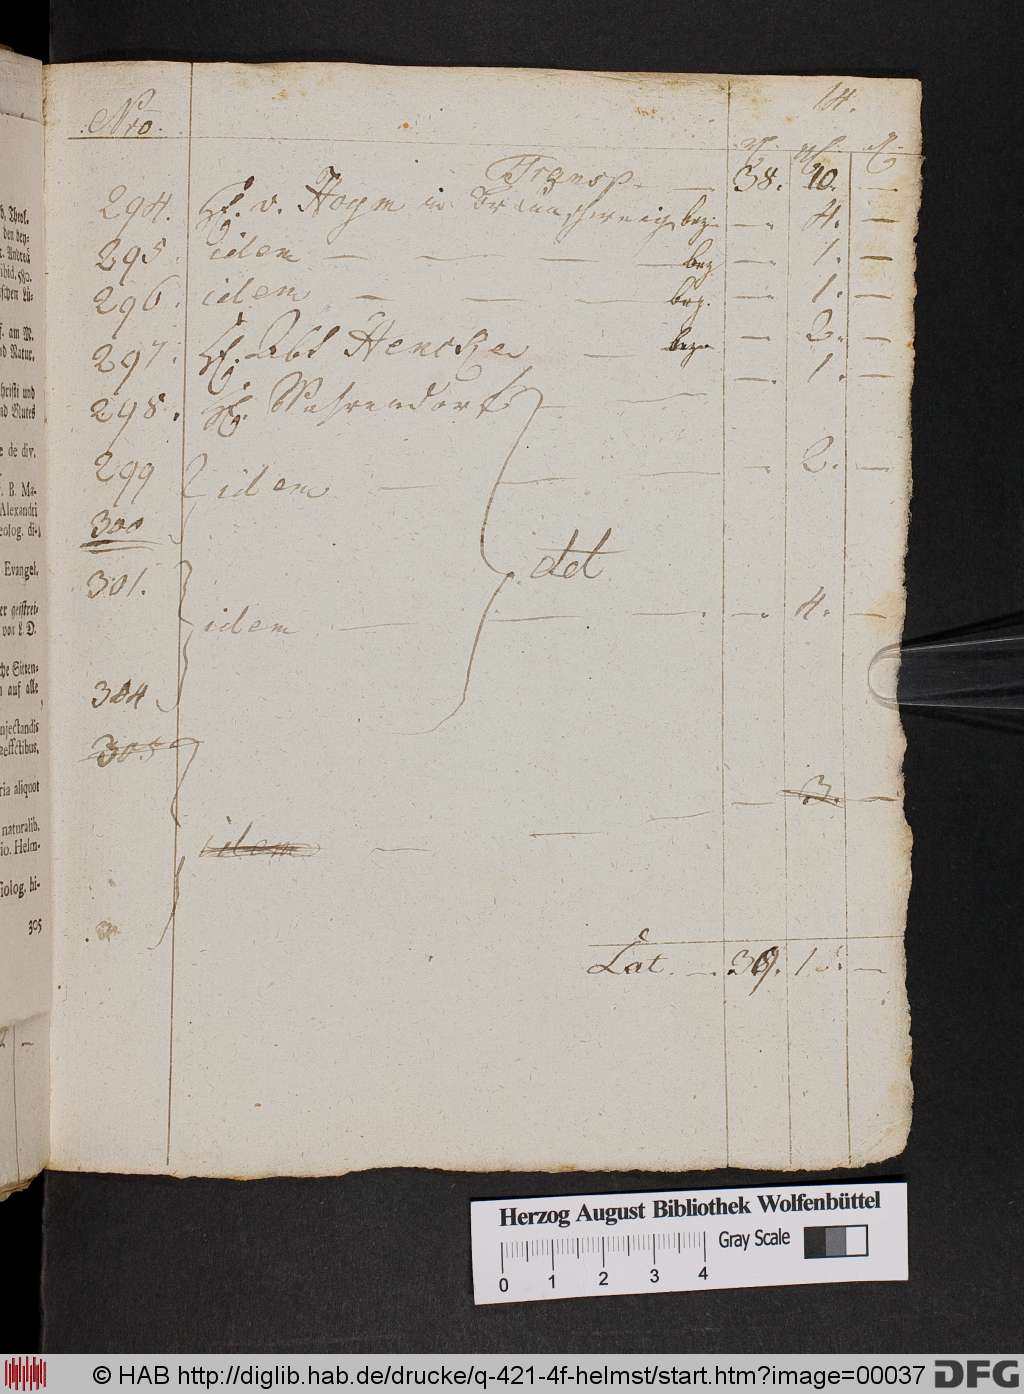 14.
Nro.
Transp. — 38. 10. —
294. H. v. Hoym in Braunschweig bez. — 4. —
295 idem — — — — bez — 1. —
296. idem — — — bez. — 1. —
297. H. Abt Hencke — bez. — 2. —
298. H. Wehrendorf — — — 1. —
299 idem — — — — 2. —
300
dd
301.
idem — — — — 4. —
304
305
3. —
idem — — —
Lat. — 39. —
d. Theol.
Andreä
am M.
nd Natur.
hristi und
de div.
B. Ma-
Alexandri
eolog. di-
Evangel.
von L. D.
che Sitten-
auf alle
ria aliquot
naturalib.
io. Helm-
siolog. hi-
305
Herzog August Bibliothek Wolfenbüttel
Gray Scale
0 1 2 3 4
© HAB http://diglib.hab.de/drucke/q-421-4f-helmst/start.htm?image=00037
DFG